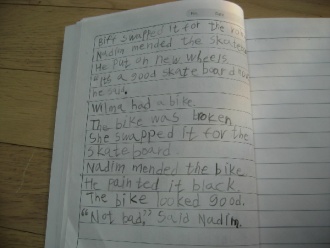 Biff swapped it for the
Nadim mended the skateb
He put on new wheels.
"It's a good skateboard now
he said.
Wilma had a bike.
The bike was broken
She swapped it for the
skateboard.
Nadim mended the bike.
He painted it black.
The bike looked good.
"Not bad," said Nadim.